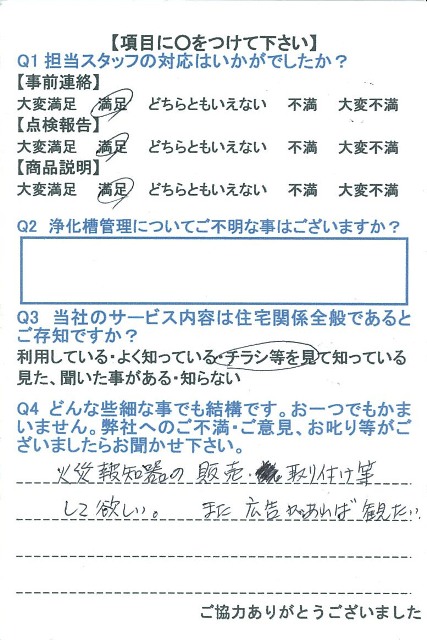 【項目に○をつけて下さい】
Q1 担当スタッフの対応はいかがでしたか？
【事前連絡】
大変満足 満足 どちらともいえない 不満 大変不満
【点検報告】
大変満足 満足 どちらともいえない 不満 大変不満
【商品説明】
大変満足 満足 どちらともいえない 不満 大変不満
Q2 浄化槽管理についてご不明な事はございますか？
Q3 当社のサービス内容は住宅関係全般であると
ご存知ですか？
利用している・よく知っている・チラシ等を見て知っている
見た、聞いた事がある・知らない
Q4 どんな些細な事でも結構です。お一つでもかま
いません。弊社へのご不満・ご意見、お叱り等がご
ざいましたらお聞かせ下さい。
火災報知器の販売・取り付け等
して欲しい。 また広告があれば観たい。
ご協力ありがとうございました